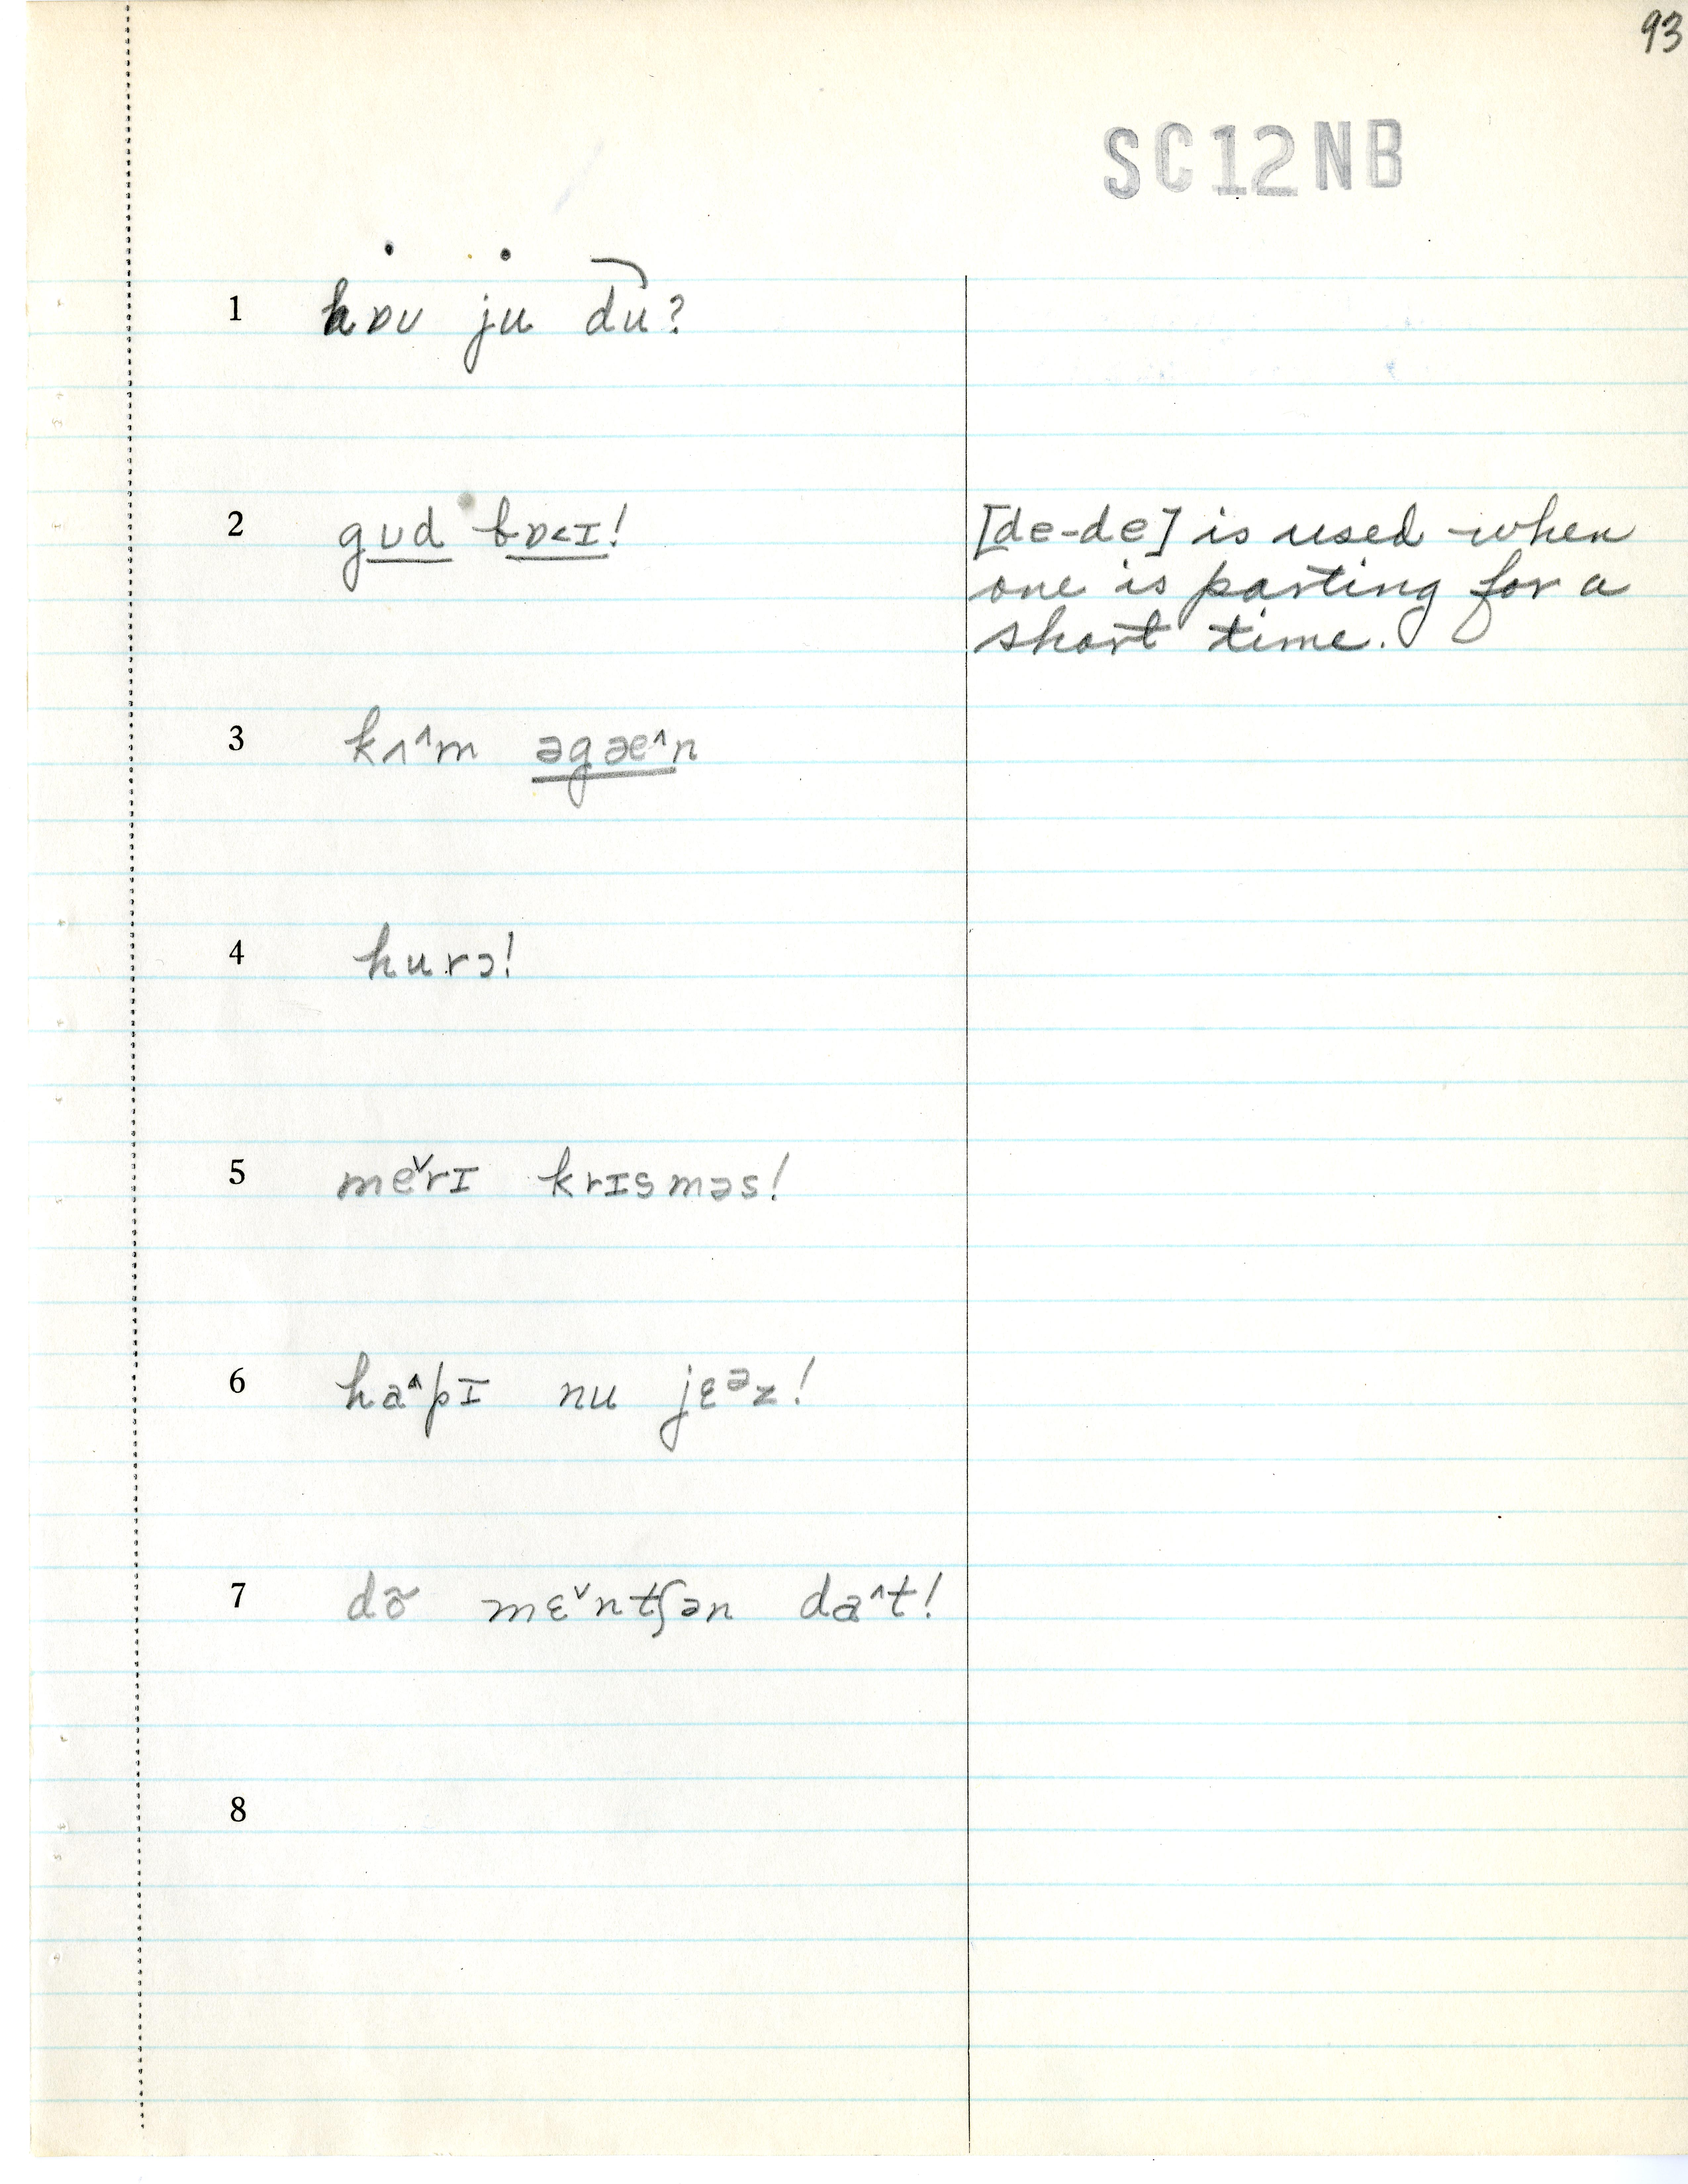 93
SC12NB
1 hɒʊ ju du?
2 gʊd bɒ˂ɪ!
[de-de] is used when
one is parting for a
short time.
3 kʌ^m əgæ^n
4 hurɔ!
5 meˇrɪ krɪsməs!
6 ha^pɪ nu jɛᵊz!
7 dõ mɛˇntʃən da^t!
8